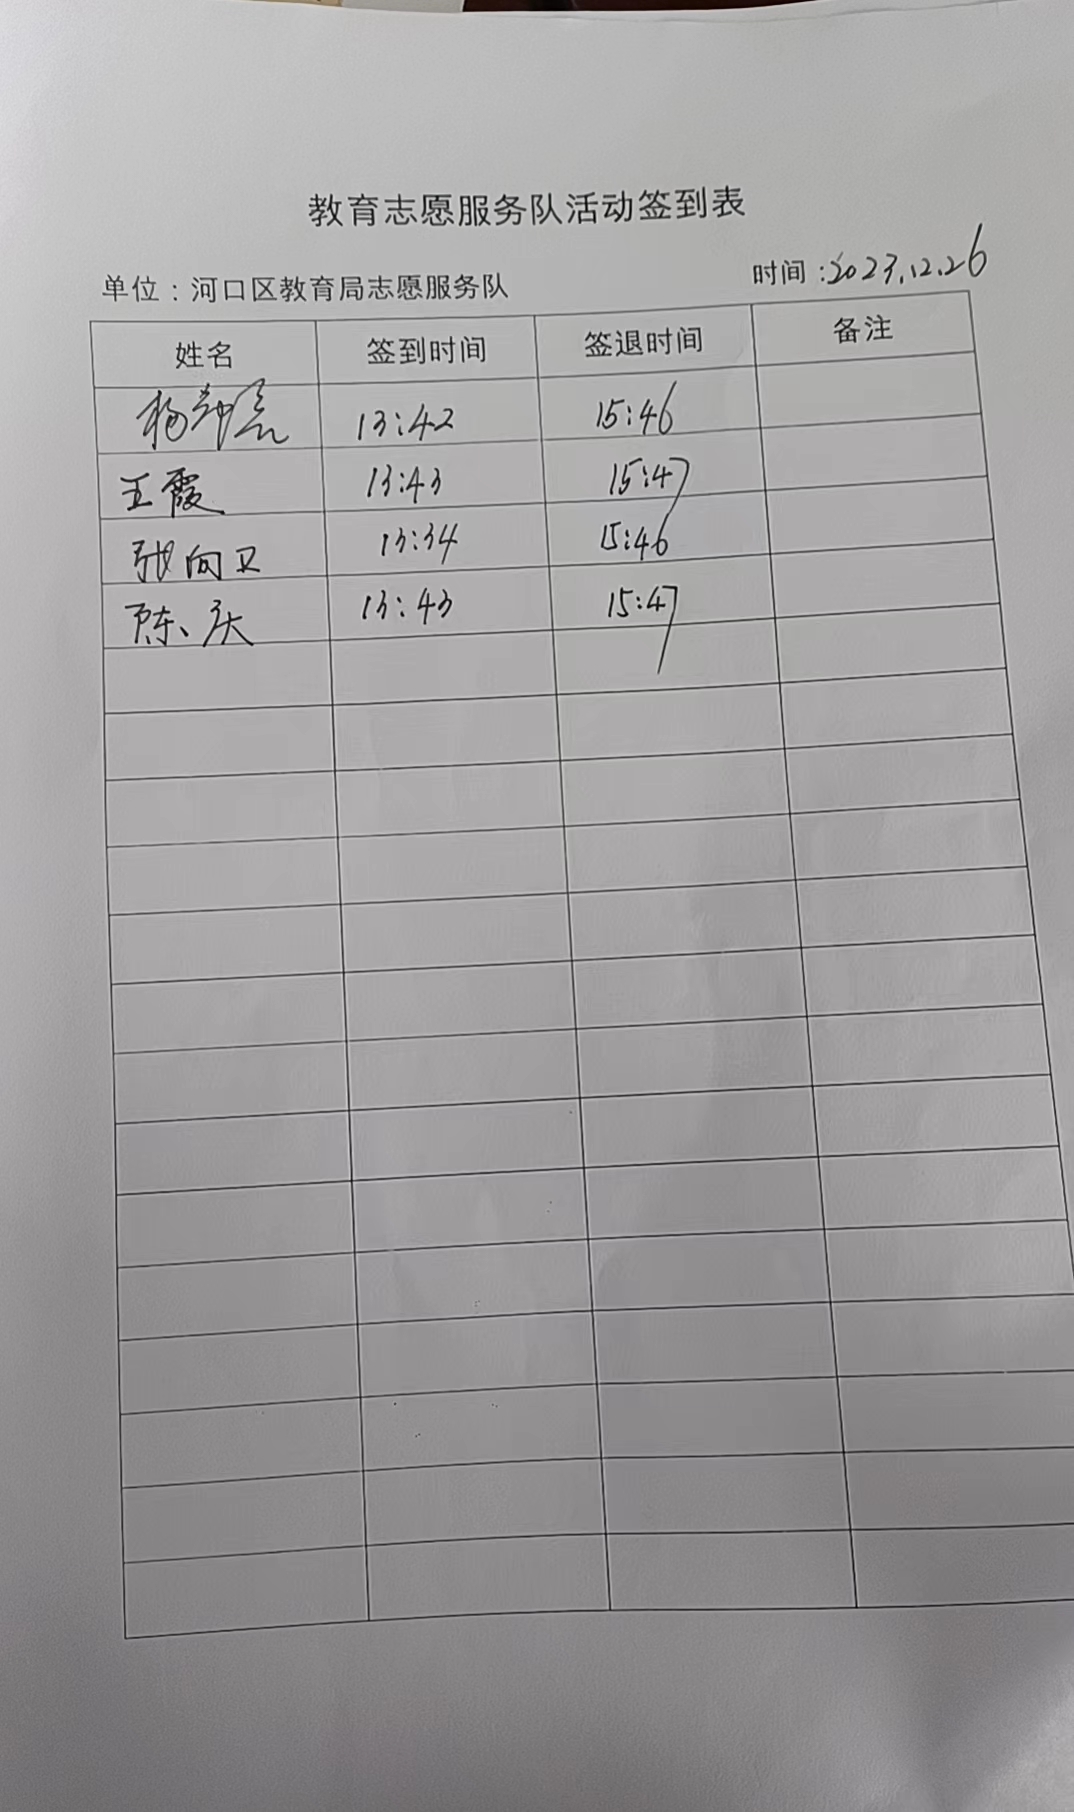 教育志愿服务队活动签到表
单位：河口区教育局志愿服务队 时间：2023.12.26
姓名 签到时间 签退时间 备注
杨 13:42 15:46
王霞 13:43 15:47
张向卫 13:34 15:46
陈庆 13:43 15:47